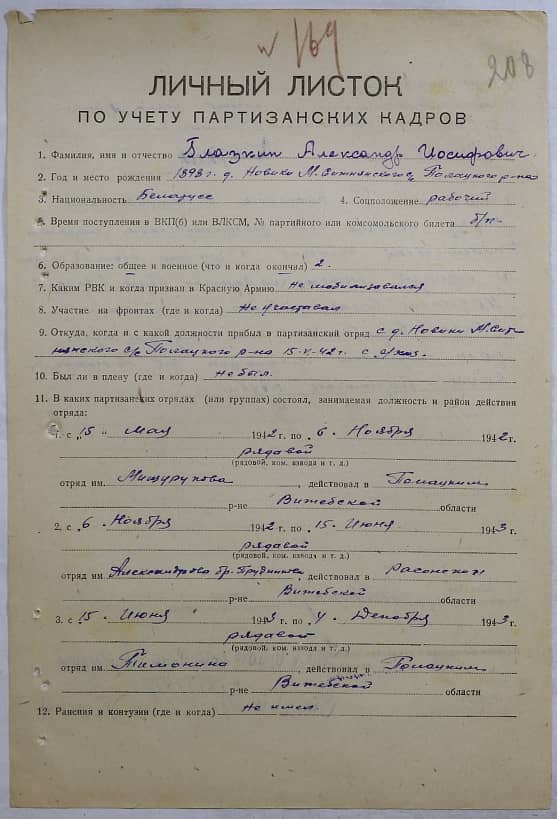 № 169
208
ЛИЧНЫЙ ЛИСТОК
ПО УЧЕТУ ПАРТИЗАНСКИХ КАДРОВ
1. Фамилия, имя и отчество Блазкин Александр Иосифович.
2. Год и место рождения 1898 г. д. Новики М. Ситнянского с/с Полацкого р-на
3. Национальность Беларусс 4. Соцположение рабочий
5. Время поступления в ВКП(б) или ВЛКСМ, № партийного или комсомольского билета б/п
6. Образование: общее и военное (что и когда окончил) 2.
7. Каким РВК и когда призван в Красную Армию не мобилизовался
8. Участие на фронтах (где и когда) не участвовал
9. Откуда, когда и с какой должности прибыл в партизанский отряд с д. Новики М. Сит-
нянского с/с Полацкого р-на 15-V-42 г. с с/хоз.
10. Был ли в плену (где и когда) не был.
11. В каких партизанских отрядах (или группах) состоял, занимаемая должность и район действия
отряда:
1. с „15„ мая 1942 г. по 6. Ноября 1942 г.
рядавой
(рядовой, ком. взвода и т. д.)
отряд им. Мишурукова, действовал в Полацким
р-не Витебской области
2. с 6 Ноября 1942 г. по 15. Июня 1943 г.
рядавой
(рядовой, ком. взвода и т. д.)
отряд им. Александрова бр. Прудникова, действовал в Расонском
р-не Витебской области
3. с 15. Июня 1943 г. по 4 Декабря 1943 г.
рядавой
(рядовой, ком. взвода и т. д.)
отряд им. Тимонина действовал в Полацким
р-не Витебской области
12. Ранения и контузии (где и когда) не имел.